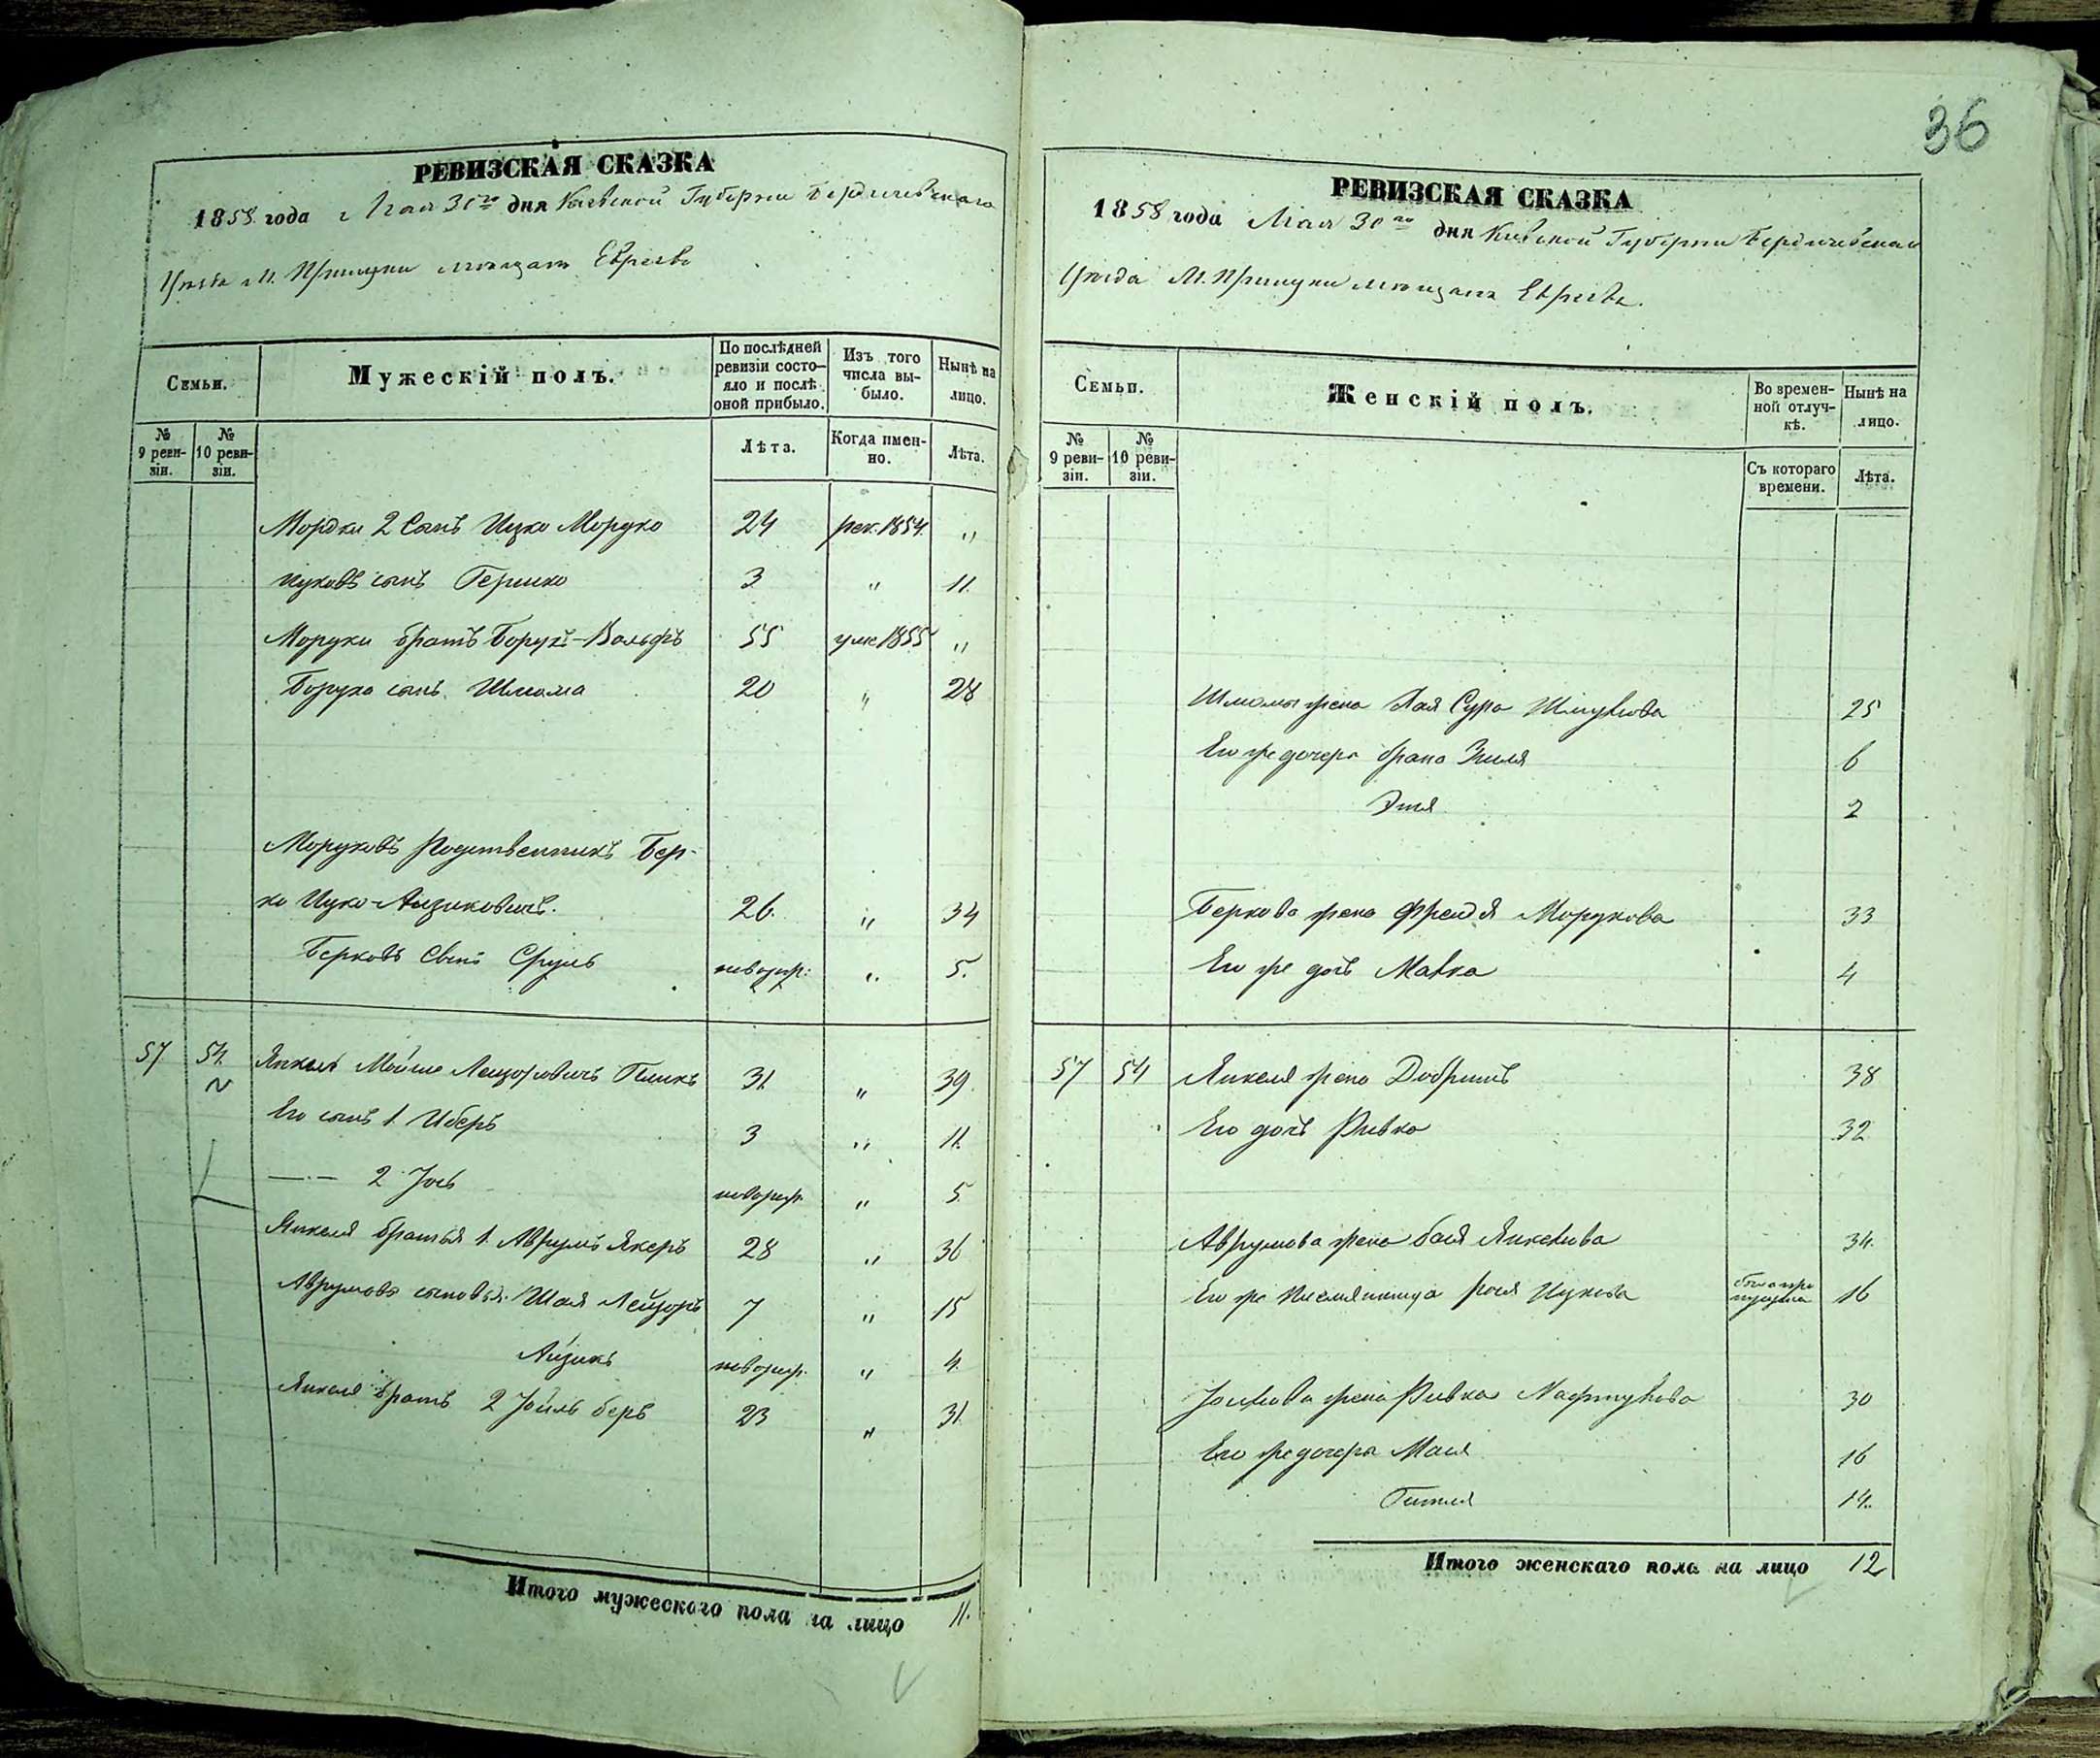 36
РЕВИЗСКАЯ СКАЗКА
1858 года Мая 30го дня Киевской Губернии Бердичевскаго
Уезда М. Прилуки мещан Евреев
Семьи.
Мужескій полъ.
По послѣдней ревизіи состояло и послѣ оной прибыло.
Изъ того числа выбыло.
Нынѣ на лицо.
№ 9 ревизіи.
№ 10 ревизіи.
Лѣта.
Когда именно.
Лѣта.
Мордки 2 Сынъ Ицко Мордко 24 рек. 1854 "
Ицковъ сынъ Гершко 3 " 11.
Мордки братъ Борухъ-Вольфъ 55 уме 1855 "
Боруха сынъ Шлиома 20 " 28
Мордковъ Родственникъ Бер-
ко Ицко-Аизиковичъ. 26. " 34
Берковъ Сынъ Сруль новорож: " 5.
57 54. Янкель Мойше Лейзоровичъ 31. " 39.
Его сынъ 1. Иберъ 3 " 11.
—·— 2 Іось новорож. " 5
Янкеля братья 1. Аврумъ Якеръ 28 " 36
Аврумова сыновья. Шая Лейзоръ 7 " 15
Айзикъ новорож. " 4.
Янкеля братъ 2 Іойль беръ 23 " 31.
Итого мужескаго пола на лицо 11.
РЕВИЗСКАЯ СКАЗКА
1858 года Мая 30го дня Киевской Губернии Бердичевскаго
Уезда М. Прилуки мещан Евреев.
Семьи.
Женскій полъ.
Во временной отлучкѣ.
Нынѣ на лицо.
№ 9 ревизіи.
№ 10 ревизіи.
Съ котораго времени.
Лѣта.
Шлиомы жена Хая Сура Шмулова 25
Его же дочери брана Зиля 6
Этя 2
Беркова жена Фрейдя Мордкова 33
Его же дочь Малка 4
57 54 Янкеля жена Добришъ 38
Его дочь Ривка 32
Аврумова жена бася Янкелева 34.
Его же Племянница рося Ицкова 16
Іойлева жена Ривка 30
Его же дочери Мася 16
Гитля 14.
Итого женскаго пола на лицо 12